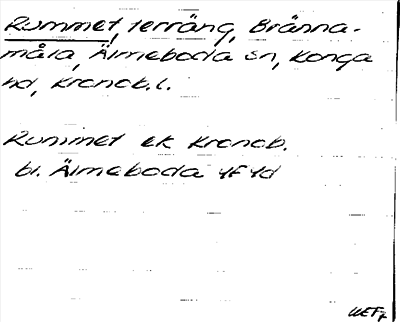 Rummet, terräng, Bränna-
måla, Älmeboda sn, Konga
hd, Kronob. l.
Rummet ek Kronob.
bl. Älmeboda 4F4d